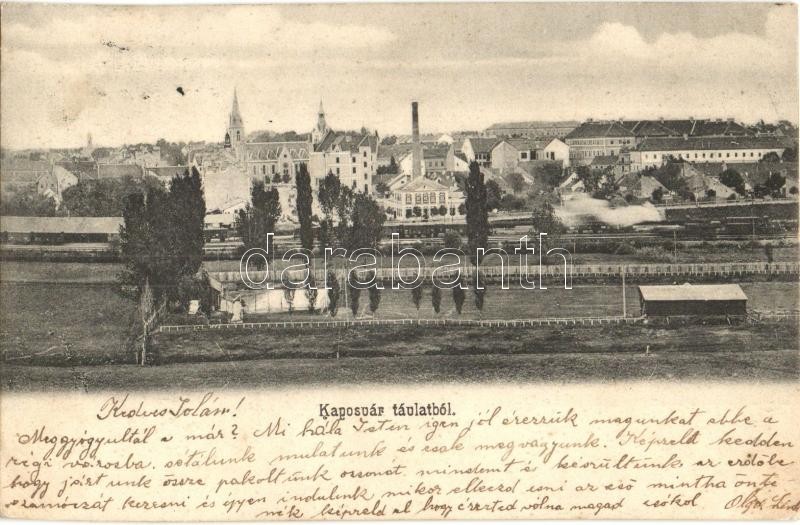 darabanth
Kaposvár távlatból.
Kedves Jolán!
Meggyógyultál e már? Mi hála Isten igen jól érezzük magunkat ebbe a
régi városba, sétálunk mulatunk és csak megvagyunk. Képzeld kedden
hogy jártunk össze pakoltunk ossonat mindent és készültünk az erdőbe
szamóczát keresni és éppen indulunk mikor elkezd esni az eső mintha önte
nék képzeld el hogy érezted volna magad csókol Olga